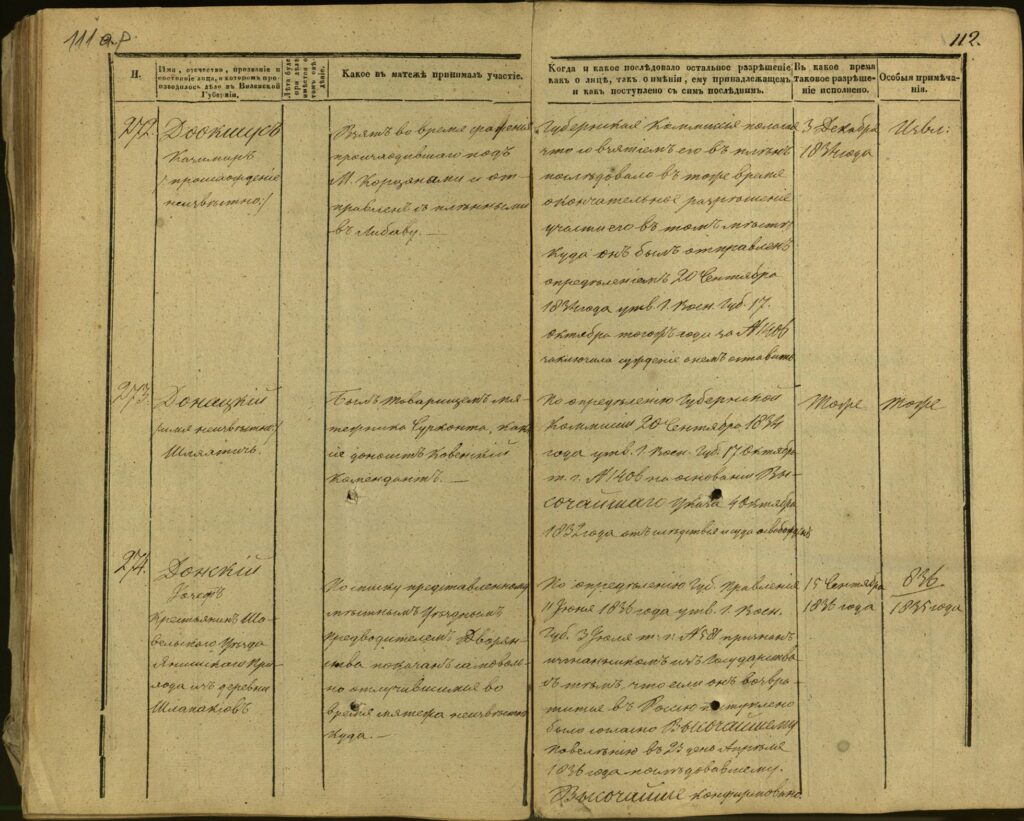 111 об.
112.
И.
Имя, отечество, прозваніе и
состояніе лица, о которомъ про-
изводилось дѣло въ Виленской
Губерніи.
Какое въ мятежѣ принималъ участіе.
Когда и какое послѣдовало остальное разрѣшеніе
какъ о лицѣ, такъ о имѣніи, ему принадлежащемъ
и какъ поступлено съ симъ послѣднимъ.
Въ какое время
таковое разрѣше-
ніе исполнено.
Особыя примѣча-
нія.
272.
Казимиръ
/происхожденіе
неизвѣстно/
Взятъ во время сраженія
происходившаго подъ
М. Корцянами и от-
правленъ съ плѣнными
въ Либаву. —
Губернская Коммисія полагая
что со взятіемъ его въ плѣнъ
послѣдовало въ тоже время
окончательное разрѣшеніе
участи его въ томъ мѣстѣ
куда онъ былъ отправленъ
опредѣленіемъ 20 Сентября
1834 года утв. Г. Воен. Губ. 17
Октября тогожъ года за № 1406
заключила сужденіе о немъ оставить
3 Декабря
1834 года
273.
Донацкій
/имя неизвѣстно/
Шляхтичъ.
Былъ товарищемъ мя-
тежника Сурконта, как
доноситъ Ковенскій
Комендантъ. —
По опредѣленію Губернской
Коммисіи 20 Сентября 1834
года утв. Г. Воен. Губ. 17 Октября
т. г. № 1406 на основаніи Вы-
сочайшаго Указа 4 Октября
1832 года отъ слѣдствія и суда освобожденъ
Тоже
Тоже
274.
Донскій
Крестьянинъ Ша-
вельскаго Уѣзда
Янишскаго При-
хода изъ деревни
По списку представленному
мѣстнымъ Уѣзднымъ
Предводителемъ Дворян-
ства показанъ самоволь-
но отлучившимся во
время мятежа неизвѣстно
куда. —
По опредѣленію Губ. Правленія
11 Іюня 1836 года утв. Г. Воен.
Губ. 3 Іюля т. г. № 58 признанъ
изгнанникомъ изъ Государства
съ тѣмъ, что если онъ возвра-
тится въ Россію поступлено
было согласно Высочайшему
повелѣнію въ 23 день Апрѣля
1836 года послѣдовавшему.
Высочайше конфирмовано
15 Сентября
1836 года
836
1835 года